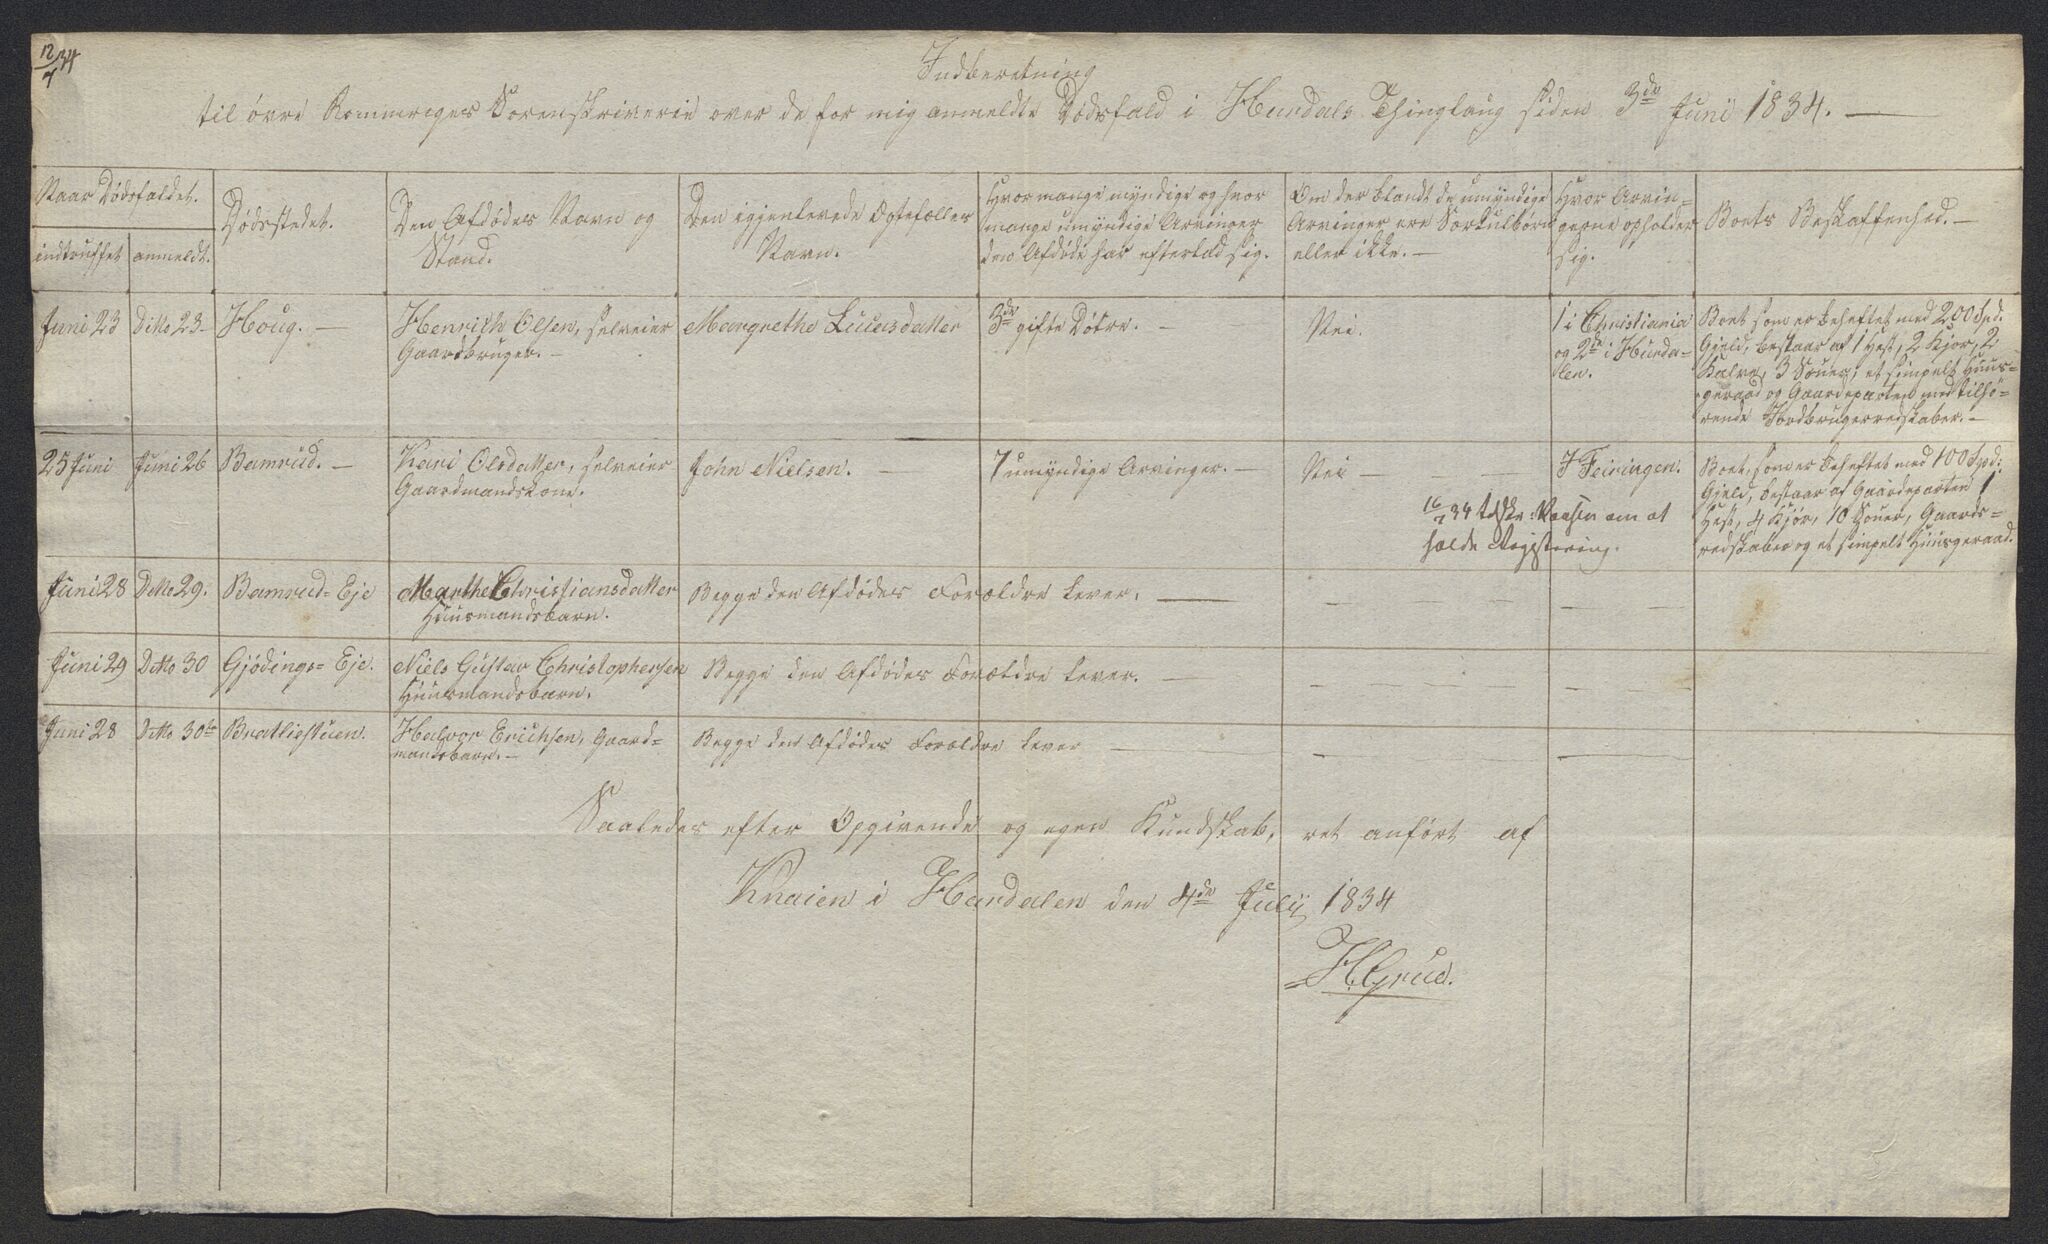 12/7 34
Indberetning
til övre Rommeriges Sorenskriverie over de for mig anmeldte Dödsfald i Hurdals Thinglaug siden 3die Juni 1834. —
Naar Dödsfaldet.
indtruffet
anmeldt.
Dödsstedet.
Den Afdödes Navn og
Stand.
Den igjenlevede Egtefælles
Navn.
Hvor mange myndige og hvor
mange umyndige Arvinger
den Afdöde har efterlad sig.
Om der blandt de umyndige
Arvinger ere Særkulbörn
eller ikke. —
Hvor Arvin-
gerne opholder
sig.
Boets Beskaffenhed. —
Juni 23
Ditto 23 -
Houg. —
Henrich Olsen, selveier
Gaardbruger. —
Margrethe Lucasdatter
3de gifte Döttre. —
Nei.
1 i Christiania
og 2de i Hurda-
len.
Boet som er beheftet med 200 Spd.
Gjeld, bestaar af 1 Hest, 2 Kjör, 2
Kalve, 3 Souer, et simpelt Huus-
geraad og Gaardeparten med tilhö-
rende Jordbrugerredskaber. —
25 Juni
Juni 26
Bamrud. —
Kari Olsdatter, selveier
Gaardmandskone.
John Nielsen. —
7 umyndige Arvinger. —
Nei —
I Feiringen.
Boet, som er beheftet med 100 Spd:
Gjeld, bestaar af Gaardeparten 1
Hest, 4 Kjör, 10 Souer, Gaards-
redskaber og et simpelt Huusgeraad.
16/7 34 tilskr: om at
holde Registering.
Juni 28
Ditto 29.
Bamrud = Eje
Marthe Christiansdatter
Huusmandsbarn.
Begge den Afdödes Forældre lever. —
Juni 29
Ditto 30
Gjödings = Eje.
Niels Gustav Christophersen
Huusmandsbarn.
Begge den Afdödes Forældre lever. —
Juni 28
Ditto 30te
Bratliestuen.
Halvor Erichsen, Gaard=
mandsbarn. —
Begge den Afdödes Forældre lever —
Saaledes efter Opgivende og egen Kundskab, ret anfört af
Knaien i Hurdalen den 4de Julij 1834
H. Gruc.